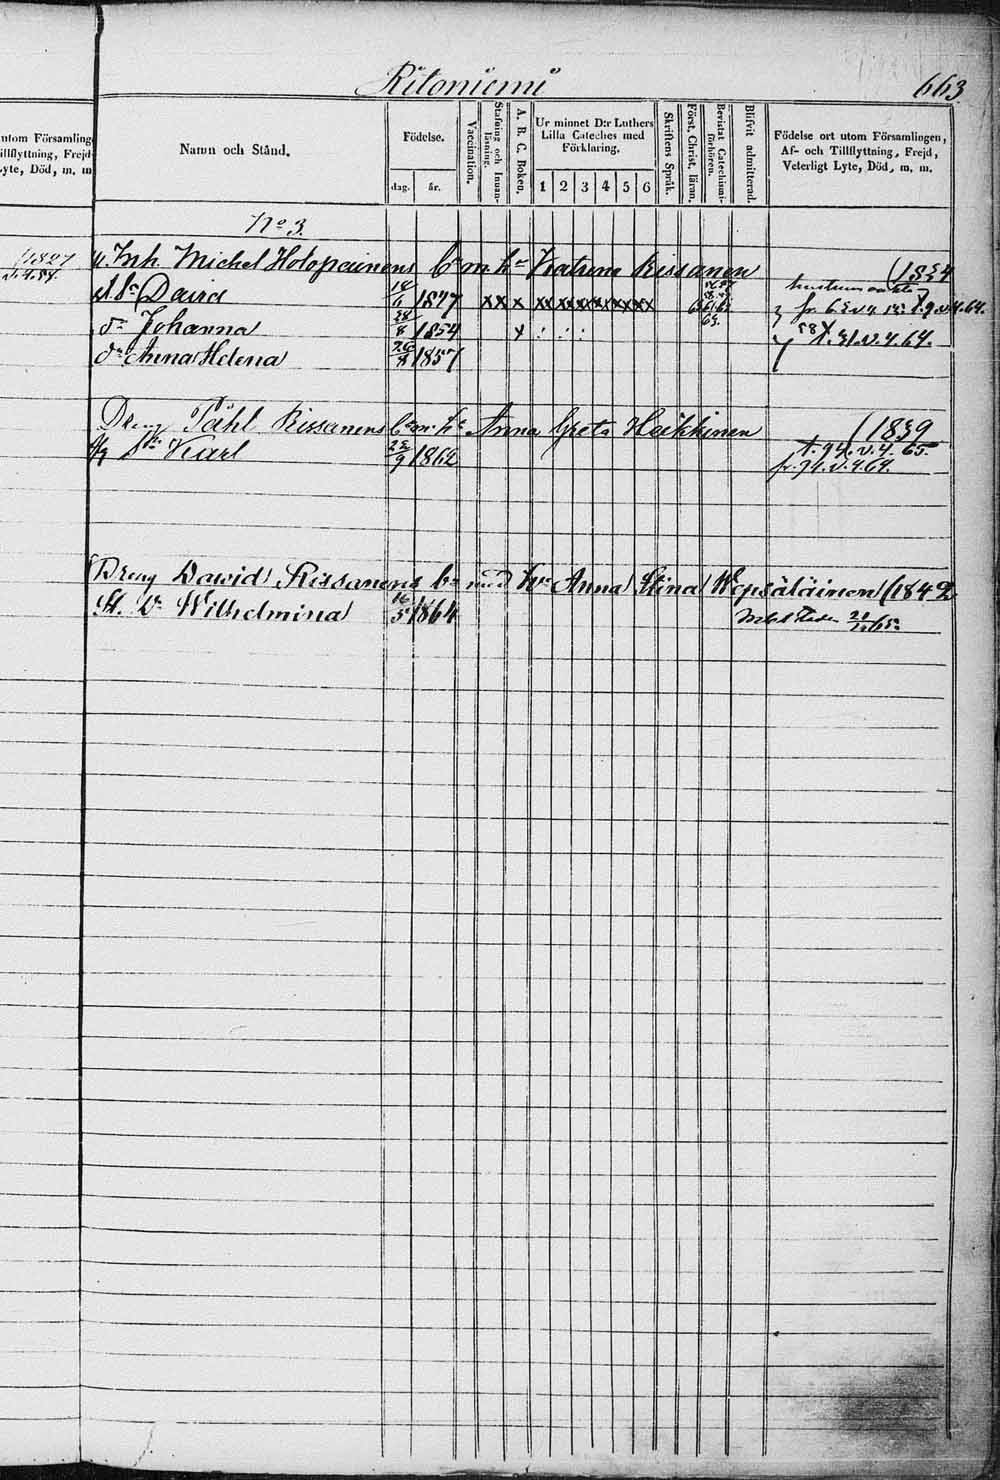 Ritoniemi 663.
utom Församling
illflyttning, Frejd
yte, Död, m. m
Namn och Stånd.
Födelse.
dag. år.
Vaccination.
Stafning och Innan-läsning.
A. B. C. Boken.
Ur minnet D:r Luthers
Lilla Cateches med
Förklaring.
1 2 3 4 5 6
Skriftens Språk.
Först. Christ. läran.
Bevistat Catechismi-förhören.
Blifvit admitterad.
Födelse ort utom Församlingen,
Af- och Tillflyttning, Frejd,
Veterligt Lyte, Död, m. m.
No 3.
1827
Inh. Michel Holopainens Bn m. h. Katrina Rissanen (1834
David 18/6 1847 x x x x x x x x x x x
fr. 64.
Johanna 28/8 1854 x : : :
v. 4. 64.
Anna Helena 26/8 1857
Dreng Påhl Rissanens Bn m. h. Anna Greta Heikkinen (1839
Karl 22/9 1862 t. 94. v. 4. 65.
fr. 94. v. 4. 64.
Dreng Dawid Rissanens bn med h. Anna Stina Wepsäläinen (1842
Wilhelmina 16/5 1864